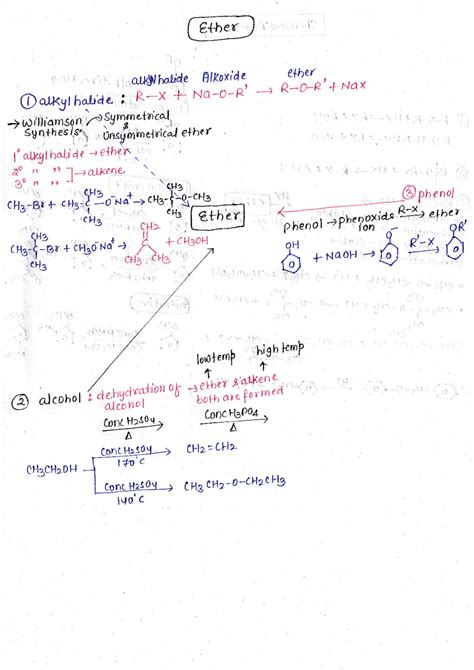 Ether
alkylhalide Alkoxide ether
① alkylhalide : R-X + Na-O-R' → R-O-R' + NaX
→ Williamson Synthesis → Symmetrical & Unsymmetrical ether
1° alkylhalide → ether
2° " " ] → alkene
3° " "
CH3-Br + CH3-C(CH3)(CH3)-O⁻Na⁺ → CH3-C(CH3)(CH3)-O-CH3
Ether
CH3-C(CH3)(CH3)-Br + CH3O⁻Na⁺ → CH2=C(CH3)CH3 + CH3OH
③ phenol
phenol → phenoxide ion R-X → ether
OH + NaOH → O⁻ R'-X → OR'
low temp high temp
② alcohol : dehydration of alcohol → ether & alkene both are formed
Conc H2SO4 Δ
Conc H3PO4 Δ
CH3CH2OH
Conc H2SO4 170°C → CH2=CH2
Conc H2SO4 140°C → CH3CH2-O-CH2CH3